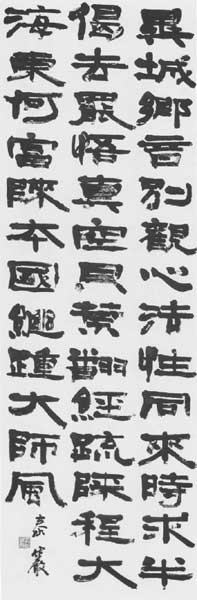 異域鄉音別觀心法性同來時求半
偈去罷悟真空貝葉翻經疏歸程大
海東何當歸本國繼踵大師風